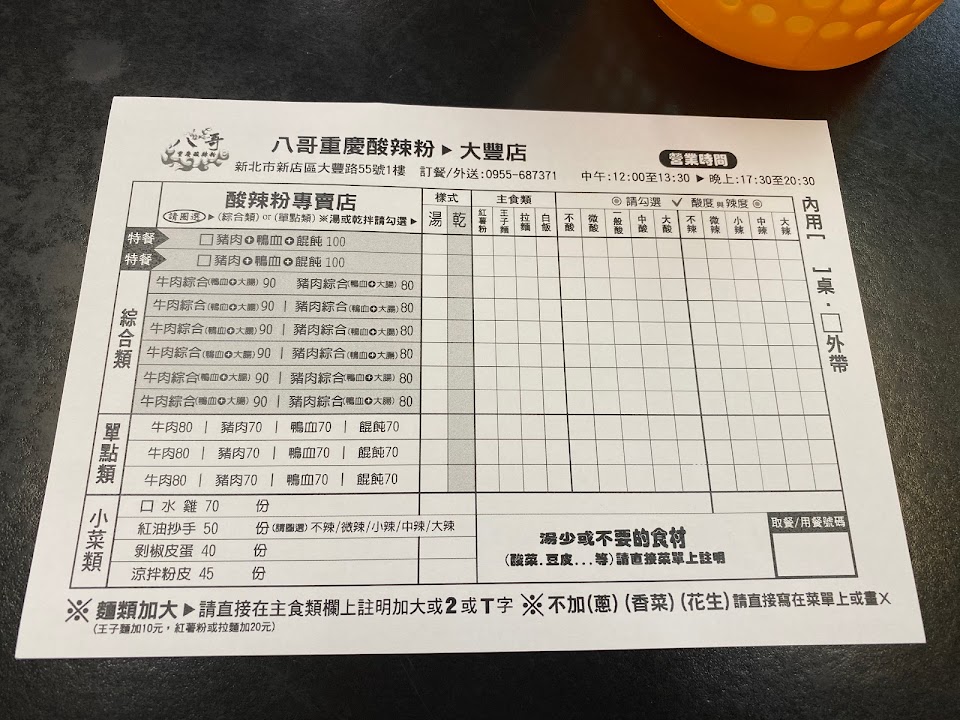 八哥
八哥重慶酸辣粉▶大豐店
營業時間
新北市新店區大豐路55號1樓 訂餐/外送:0955-687371 中午:12:00至13:30 ▶ 晚上:17:30至20:30
酸辣粉專賣店
請圈選 ▶ (綜合類) or (單點類) ※湯或乾拌請勾選 ▶
樣式 主食類 ◉請勾選 ✓ 酸度與辣度◉
湯 乾 紅薯粉 王子麵 拉麵 白飯 不酸 微酸 一般酸 中酸 大酸 不辣 微辣 小辣 中辣 大辣
內用[ ]桌.□外帶
特餐 □豬肉+鴨血+餛飩100
特餐 □豬肉+鴨血+餛飩100
綜合類
牛肉綜合(鴨血+大腸)90 豬肉綜合(鴨血+大腸)80
牛肉綜合(鴨血+大腸)90 | 豬肉綜合(鴨血+大腸)80
牛肉綜合(鴨血+大腸)90 | 豬肉綜合(鴨血+大腸)80
牛肉綜合(鴨血+大腸)90 | 豬肉綜合(鴨血+大腸)80
牛肉綜合(鴨血+大腸)90 | 豬肉綜合(鴨血+大腸)80
牛肉綜合(鴨血+大腸)90 | 豬肉綜合(鴨血+大腸)80
單點類
牛肉80 | 豬肉70 | 鴨血70 | 餛飩70
牛肉80 | 豬肉70 | 鴨血70 | 餛飩70
牛肉80 | 豬肉70 | 鴨血70 | 餛飩70
小菜類
口水雞 70 份
紅油抄手 50 份(請圈選) 不辣/微辣/小辣/中辣/大辣
剝椒皮蛋 40 份
涼拌粉皮 45 份
湯少或不要的食材
(酸菜.豆皮...等)請直接菜單上註明
取餐/用餐號碼
※麵類加大▶請直接在主食類欄上註明加大或2或T字 ※不加(蔥)(香菜)(花生)請直接寫在菜單上或畫X
(王子麵加10元,紅薯粉或拉麵加20元)